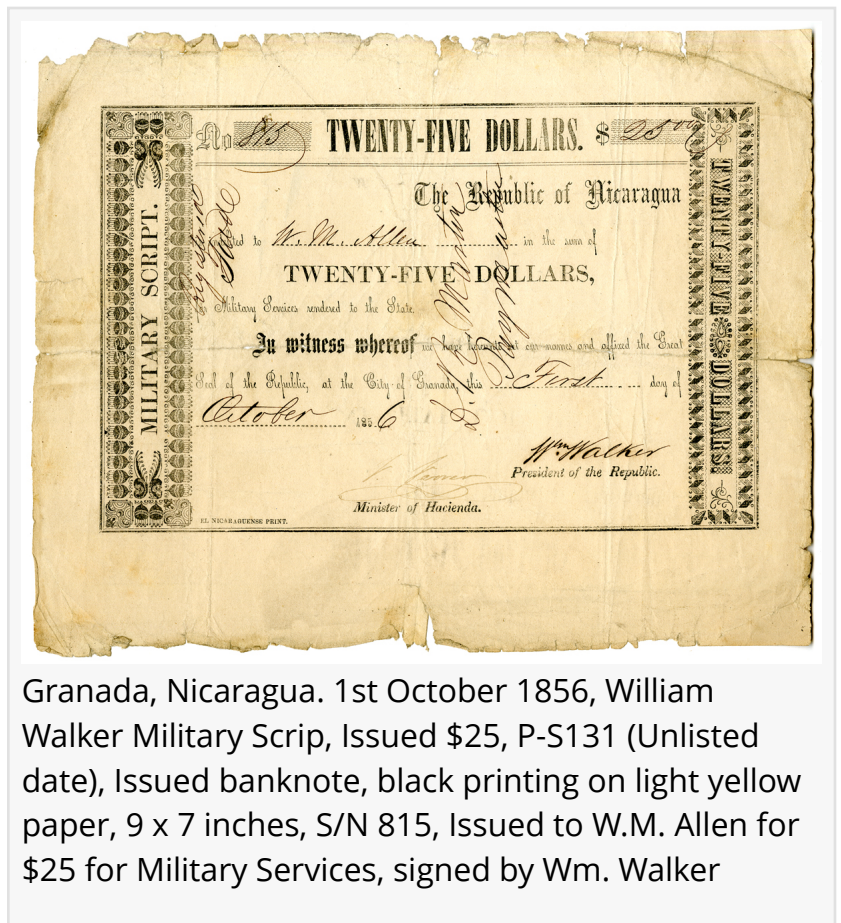 No 815 TWENTY-FIVE DOLLARS. $ 25 00
The Republic of Nicaragua
to W. M. Allen in the sum of
TWENTY-FIVE DOLLARS,
Military Services rendered to the State.
In witness whereof we have hereunto set our names and affixed the Great
Seal of the Republic, at the City of Granada, this First day of
October 1856
Wm. Walker
President of the Republic.
Minister of Hacienda.
EL NICARAGUENSE PRINT.
MILITARY SCRIPT.
TWENTY-FIVE DOLLARS.
Granada, Nicaragua. 1st October 1856, William
Walker Military Scrip, Issued $25, P-S131 (Unlisted
date), Issued banknote, black printing on light yellow
paper, 9 x 7 inches, S/N 815, Issued to W.M. Allen for
$25 for Military Services, signed by Wm. Walker